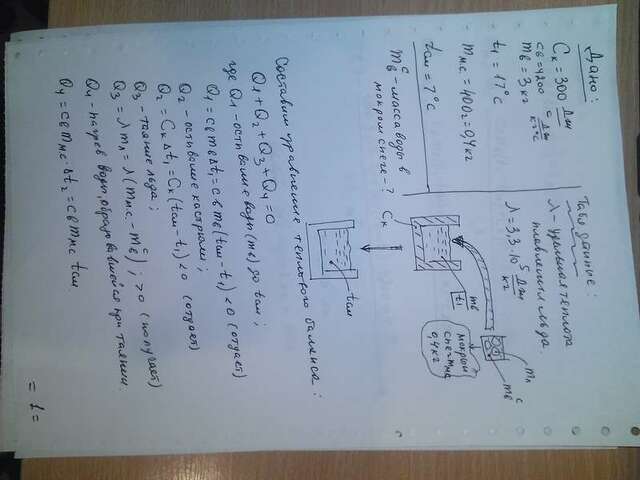 Дано:
Cк = 300 Дж/°C
cв = 4200 Дж/кг·°C
mв = 3 кг
t1 = 17°C
mмс. = 400г = 0,4 кг
tсм = 7°C
mвс – масса воды в
мокром снеге – ?
Табл данные:
λ – удельная теплота
плавления льда.
λ = 3,3·10⁵ Дж/кг
Cк
mв
t1
mл
mвс
мокрый
снег mмс
0,4 кг
tсм
Составим уравнение теплового баланса:
Q1 + Q2 + Q3 + Q4 = 0
где Q1 – остывание воды (mв) до tсм;
Q1 = cв mв Δt1 = cв mв (tсм – t1) < 0 (отдает)
Q2 – остывание кастрюли;
Q2 = Cк Δt1 = Cк (tсм – t1) < 0 (отдает)
Q3 – таяние льда;
Q3 = λ mл = λ (mмс. – mвс); > 0 (получает)
Q4 – нагрев воды, образовавшейся при таянии.
Q4 = cв mмс · Δt2 = cв mмс tсм
= 1 =